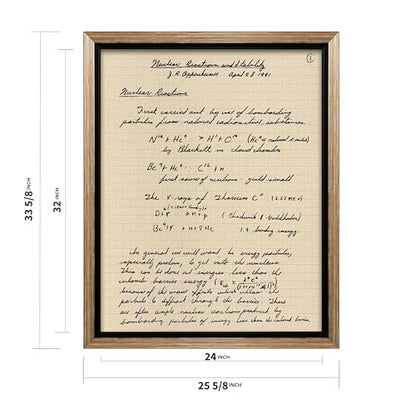 Nuclear Reactions and Stability
①
J. R. Oppenheimer April 28 1941
Nuclear Reactions
First carried out by use of bombarding
particles from natural radioactive substances.
N¹⁴ + He⁴ → H¹ + C¹⁴ (He⁴
by Blackett in cloud chamber
Be⁹ + He⁴ C¹² + n
first source of neutrons yield small
The γ-rays of Thorium C" (2.62 mev)
D + γ → n + p (Chadwick & Goldhaber)
Be⁹ + γ → n + 2He binding energy
In general we will want to energy particles,
especially protons, to get into the
This can be done at energies less than the
coulomb barrier energy
because of the wave effects which allow the
particle to diffract through the barrier. There
are often ample nuclear reactions produced by
bombarding particles of energy less than the
33 5/8 INCH
32 INCH
24 INCH
25 5/8 INCH